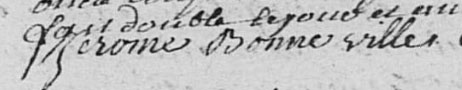 fait double le jour et an
Jerome Bonne ville